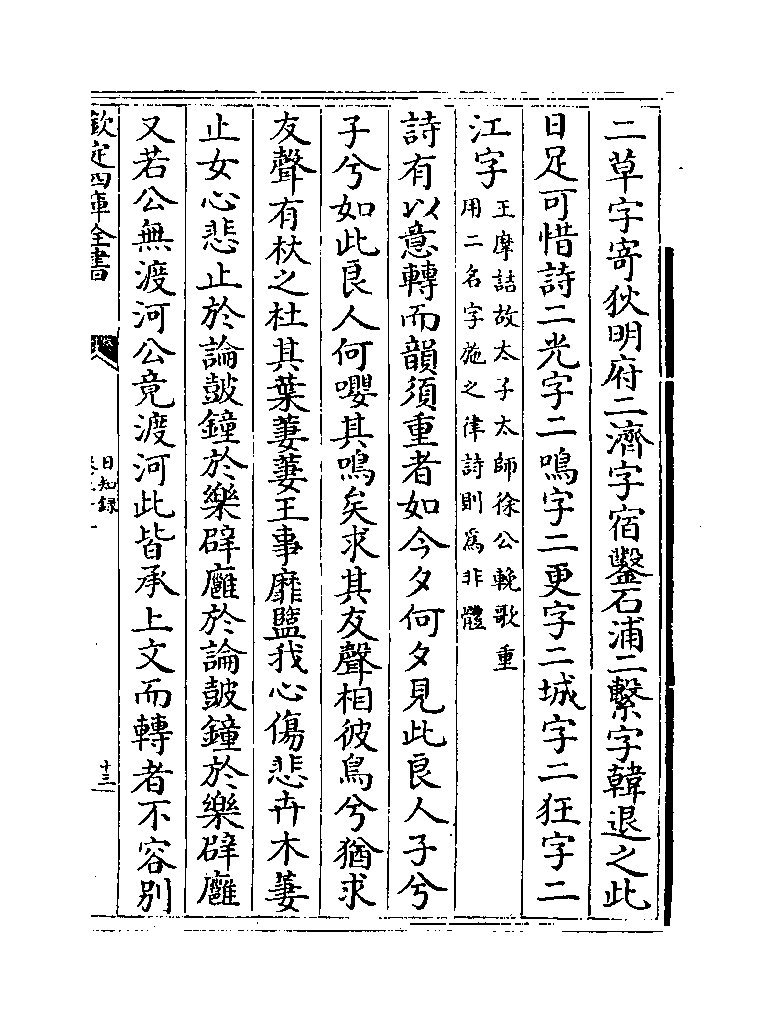 二草字寄狄明府二濟字宿鑿石浦二繫字韓退之此
日足可惜詩二光字二鳴字二更字二城字二狂字二
江字王摩詰故太子太師徐公輓歌重
用二名字施之律詩則爲非體
詩有以意轉而韻須重者如今夕何夕見此良人子兮
子兮如此良人何嚶其鳴矣求其友聲相彼鳥兮猶求
友聲有杕之杜其葉萋萋王事靡盬我心傷悲卉木萋
止女心悲止於論鼓鐘於樂辟廱於論鼓鐘於樂辟廱
又若公無渡河公竟渡河此皆承上文而轉者不容別
欽定四庫全書
日知錄
十三